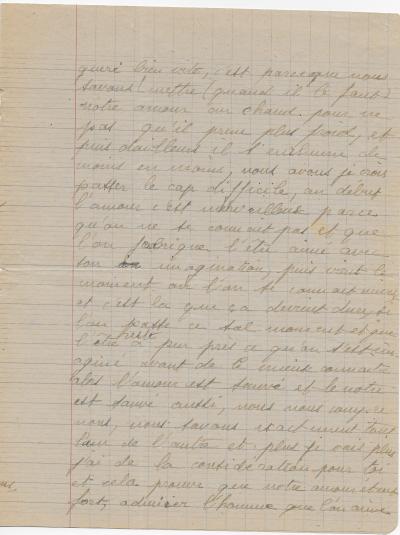 guéri bien vite, c'est parceque nous
savons mettre (quand il le faut)
notre amour au chaud pour ne
pas qu'il prene plus froid, et
puis dailleurs il s'enrhume de
moins en moins, nous avons je crois
passer le cap difficile, au début
l'amour c'est merveilleux parce
qu'on ne se connait pas et que
l'on fabrique l'être aimé avec
son imagination, puis vient le
moment ou l'on se connait mieux
et c'est la que ça devient dur, si
l'on passe ce sal moment et que
l'être reste à peu près ce qu'on s'est im-
aginé avant de le mieux connaitre
alors l'amour est sauvé et le notre
est sauvé aussi, nous nous compre
nons, nous savons exactement tous
l'un de l'autre et plus je vais plus
j'ai de la considération pour toi
et cela prouve que notre amour est
fort, admirer l'homme que l'on aime